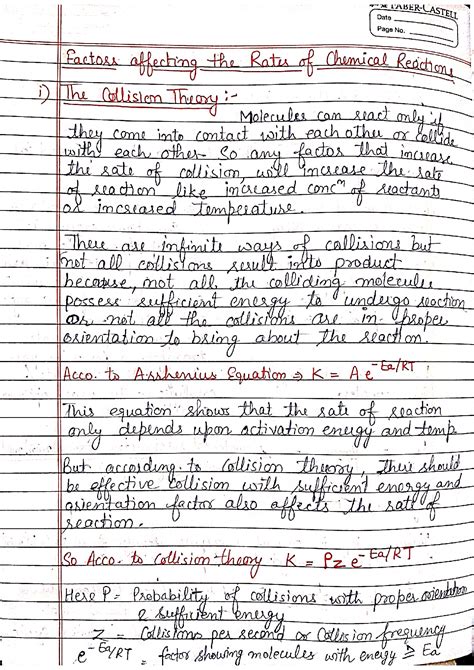 FABER-CASTELL
Date
Page No.
Factors affecting the Rates of Chemical Reactions
i) The Collision Theory :-
Molecules can react only if
they come into contact with each other or collide
with each other. So any factor that increase
the rate of collision, will increase the rate
of reaction like increased concⁿ of reactants
or increased temperature.
There are infinite ways of collisions but
not all collisions result into product
because, not all the colliding molecules
possess sufficient energy to undergo reaction
or not all the collisions are in proper
orientation to bring about the reaction.
Acco. to Arrhenius Equation ⇒ K = A e^-Ea/RT
This equation shows that the rate of reaction
only depends upon activation energy and temp
But according to Collision theory, there should
be effective collision with sufficient energy and
orientation factor also affects the rate of
reaction.
So Acco. to Collision theory. K = PZ e^-Ea/RT
Here P = Probability of collisions with proper orientation
& sufficient energy
Z = Collisions per second or Collision frequency
e^-Ea/RT = factor showing molecules with energy ≥ Ea